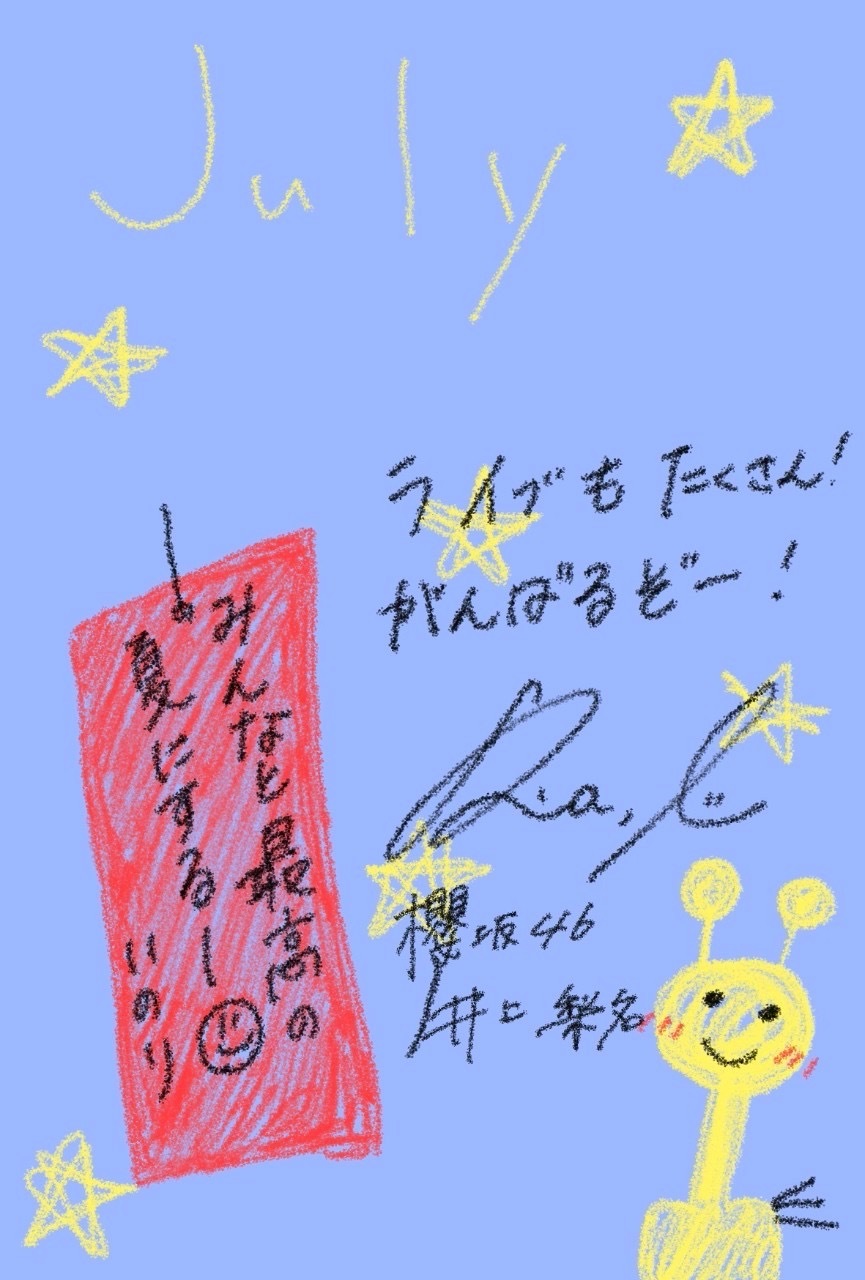 July
ライブもたくさん!
がんばるぞー!
みんなと最高の
夏にするー
いのり
櫻坂46
井上梨名